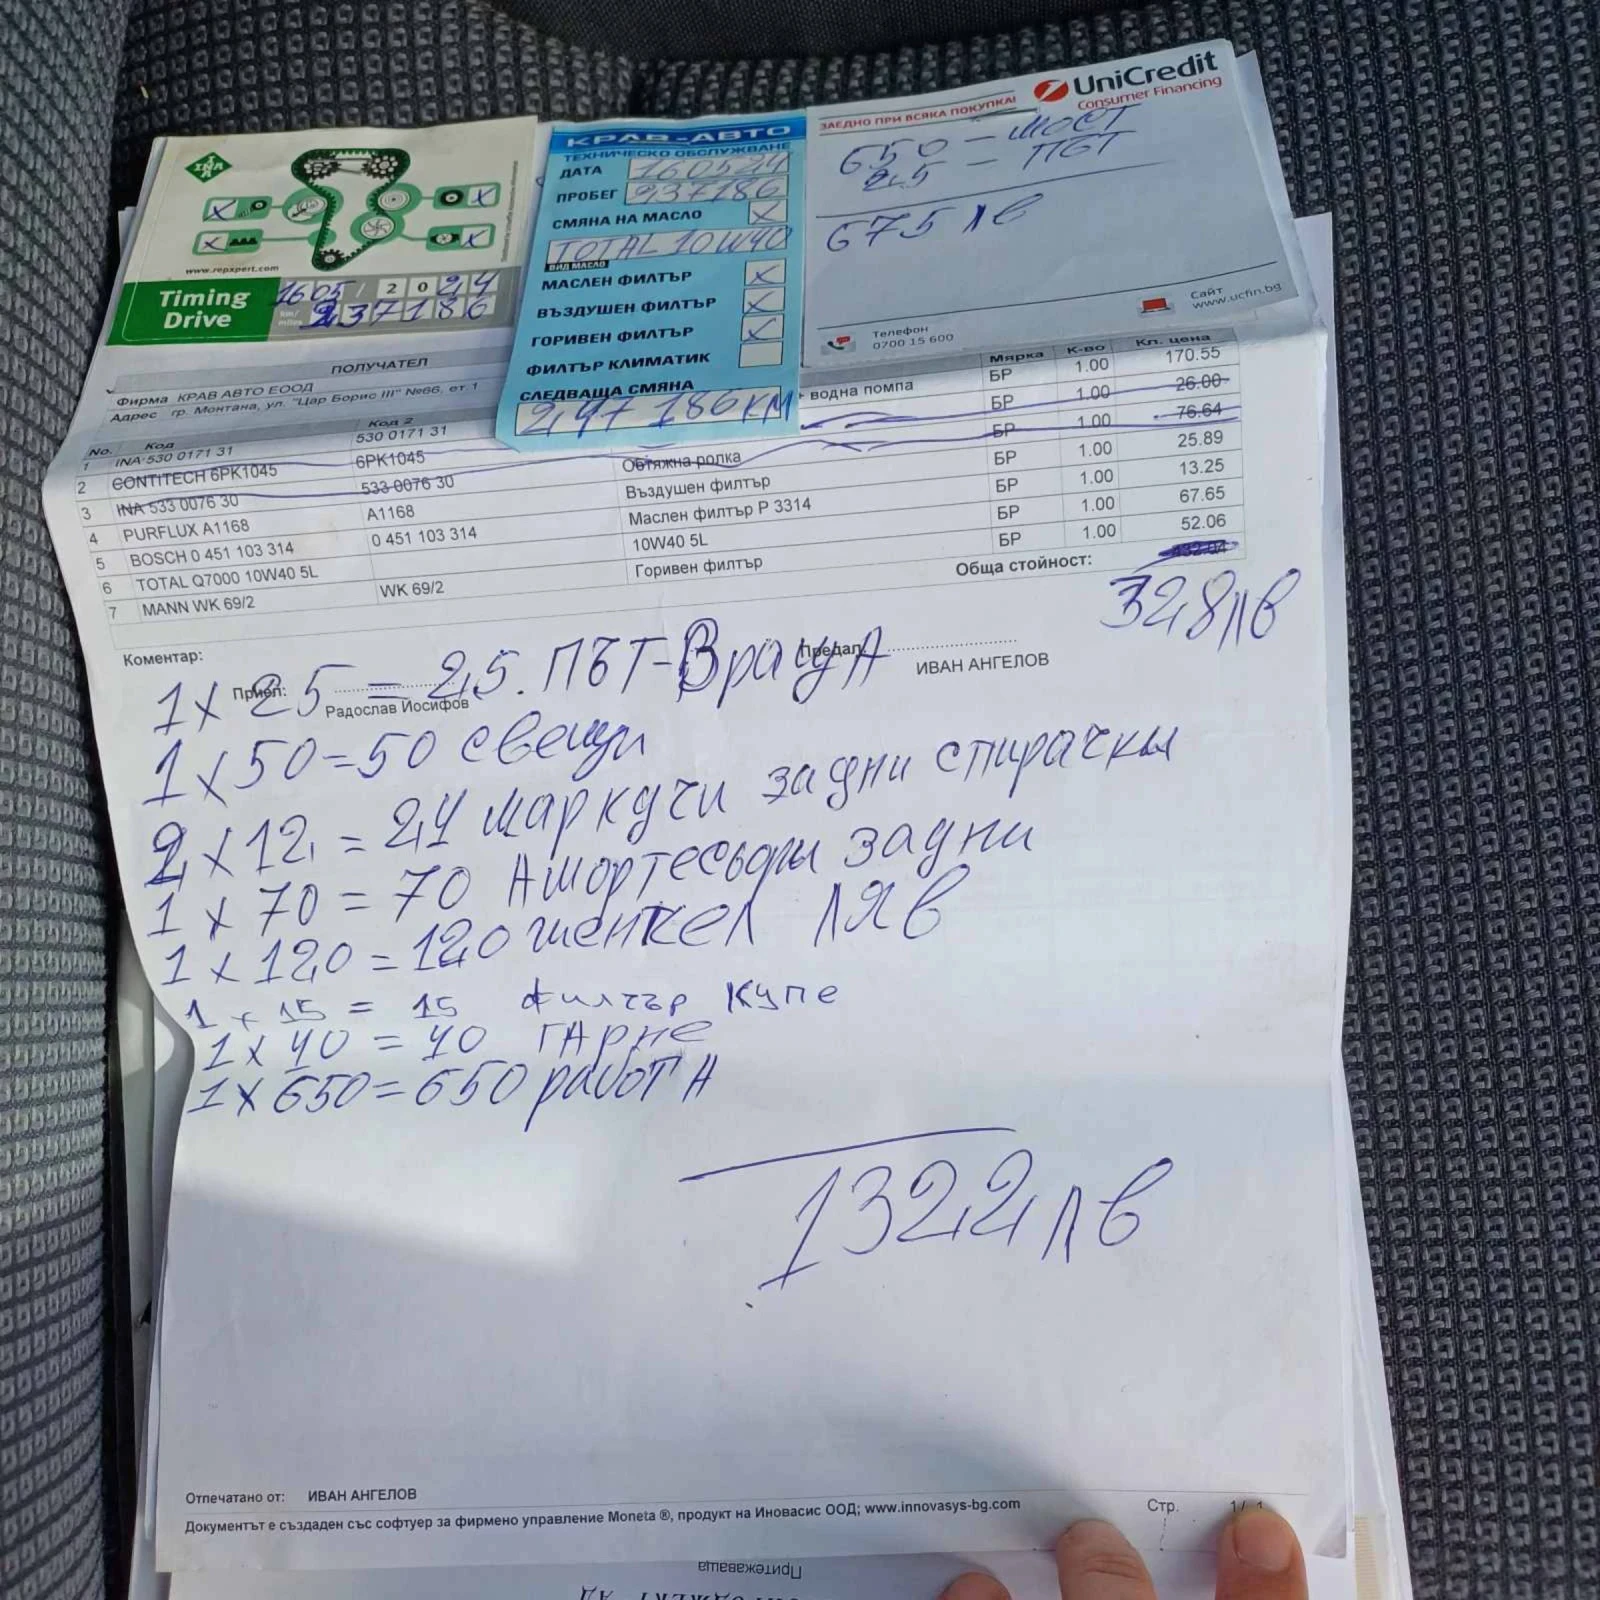 INA
www.repxpert.com
Timing Drive
1605 / 2024
km/miles 237186
КРАВ-АВТО
ТЕХНИЧЕСКО ОБСЛУЖВАНЕ
ДАТА 160524
ПРОБЕГ 237186
СМЯНА НА МАСЛО X
TOTAL 10W40
ВИД МАСЛО
МАСЛЕН ФИЛТЪР X
ВЪЗДУШЕН ФИЛТЪР X
ГОРИВЕН ФИЛТЪР X
ФИЛТЪР КЛИМАТИК
СЛЕДВАЩА СМЯНА
247186КМ
ЗАЕДНО ПРИ ВСЯКА ПОКУПКА!
UniCredit
Consumer Financing
650 - МОСТ
25 - ПЪТ
675 лв
Телефон
0700 15 600
Сайт
www.ucfin.bg
ПОЛУЧАТЕЛ
Фирма КРАВ АВТО ЕООД
Адрес гр. Монтана, ул. "Цар Борис III" №66, ет. 1
No. Код Код 2 Мярка К-во Кл. цена
1 INA 530 0171 31 530 0171 31 + водна помпа БР 1.00 170.55
2 CONTITECH 6PK1045 6PK1045 БР 1.00 26.00
3 INA 533 0076 30 533 0076 30 Обтяжна ролка БР 1.00 76.64
4 PURFLUX A1168 A1168 Въздушен филтър БР 1.00 25.89
5 BOSCH 0 451 103 314 0 451 103 314 Маслен филтър P 3314 БР 1.00 13.25
6 TOTAL Q7000 10W40 5L 10W40 5L БР 1.00 67.65
7 MANN WK 69/2 WK 69/2 Горивен филтър БР 1.00 52.06
Обща стойност:
328лв
Коментар:
Приел: Предал:
Радослав Йосифов ИВАН АНГЕЛОВ
1 x 25 = 25. ПЪТ-ВрацА
1 x 50 = 50 свещи
2 x 12 = 24 маркучи задни спирачки
1 x 70 = 70 Амортесьори задни
1 x 120 = 120 шенкел ляв
1 x 15 = 15 филтър купе
1 x 40 = 40 ГАрне
1 x 650 = 650 работА
1322лв
Отпечатано от: ИВАН АНГЕЛОВ
Документът е създаден със софтуер за фирмено управление Moneta ®, продукт на Иновасис ООД; www.innovasys-bg.com
Стр. 1/ 1
Притежаваща